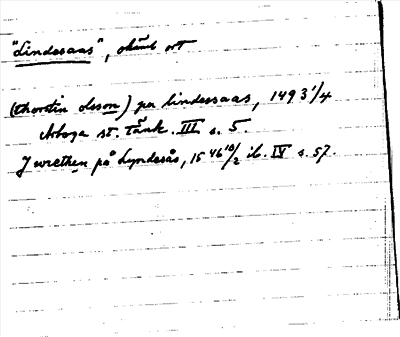 "Lindesaas", okänd ort
(thorstin olsson) per lindessaas, 1493 1/4
Arboga st. tänk. III s. 5.
J wrethen på Lyndesås, 1546 10/2 ib. IV s. 57.